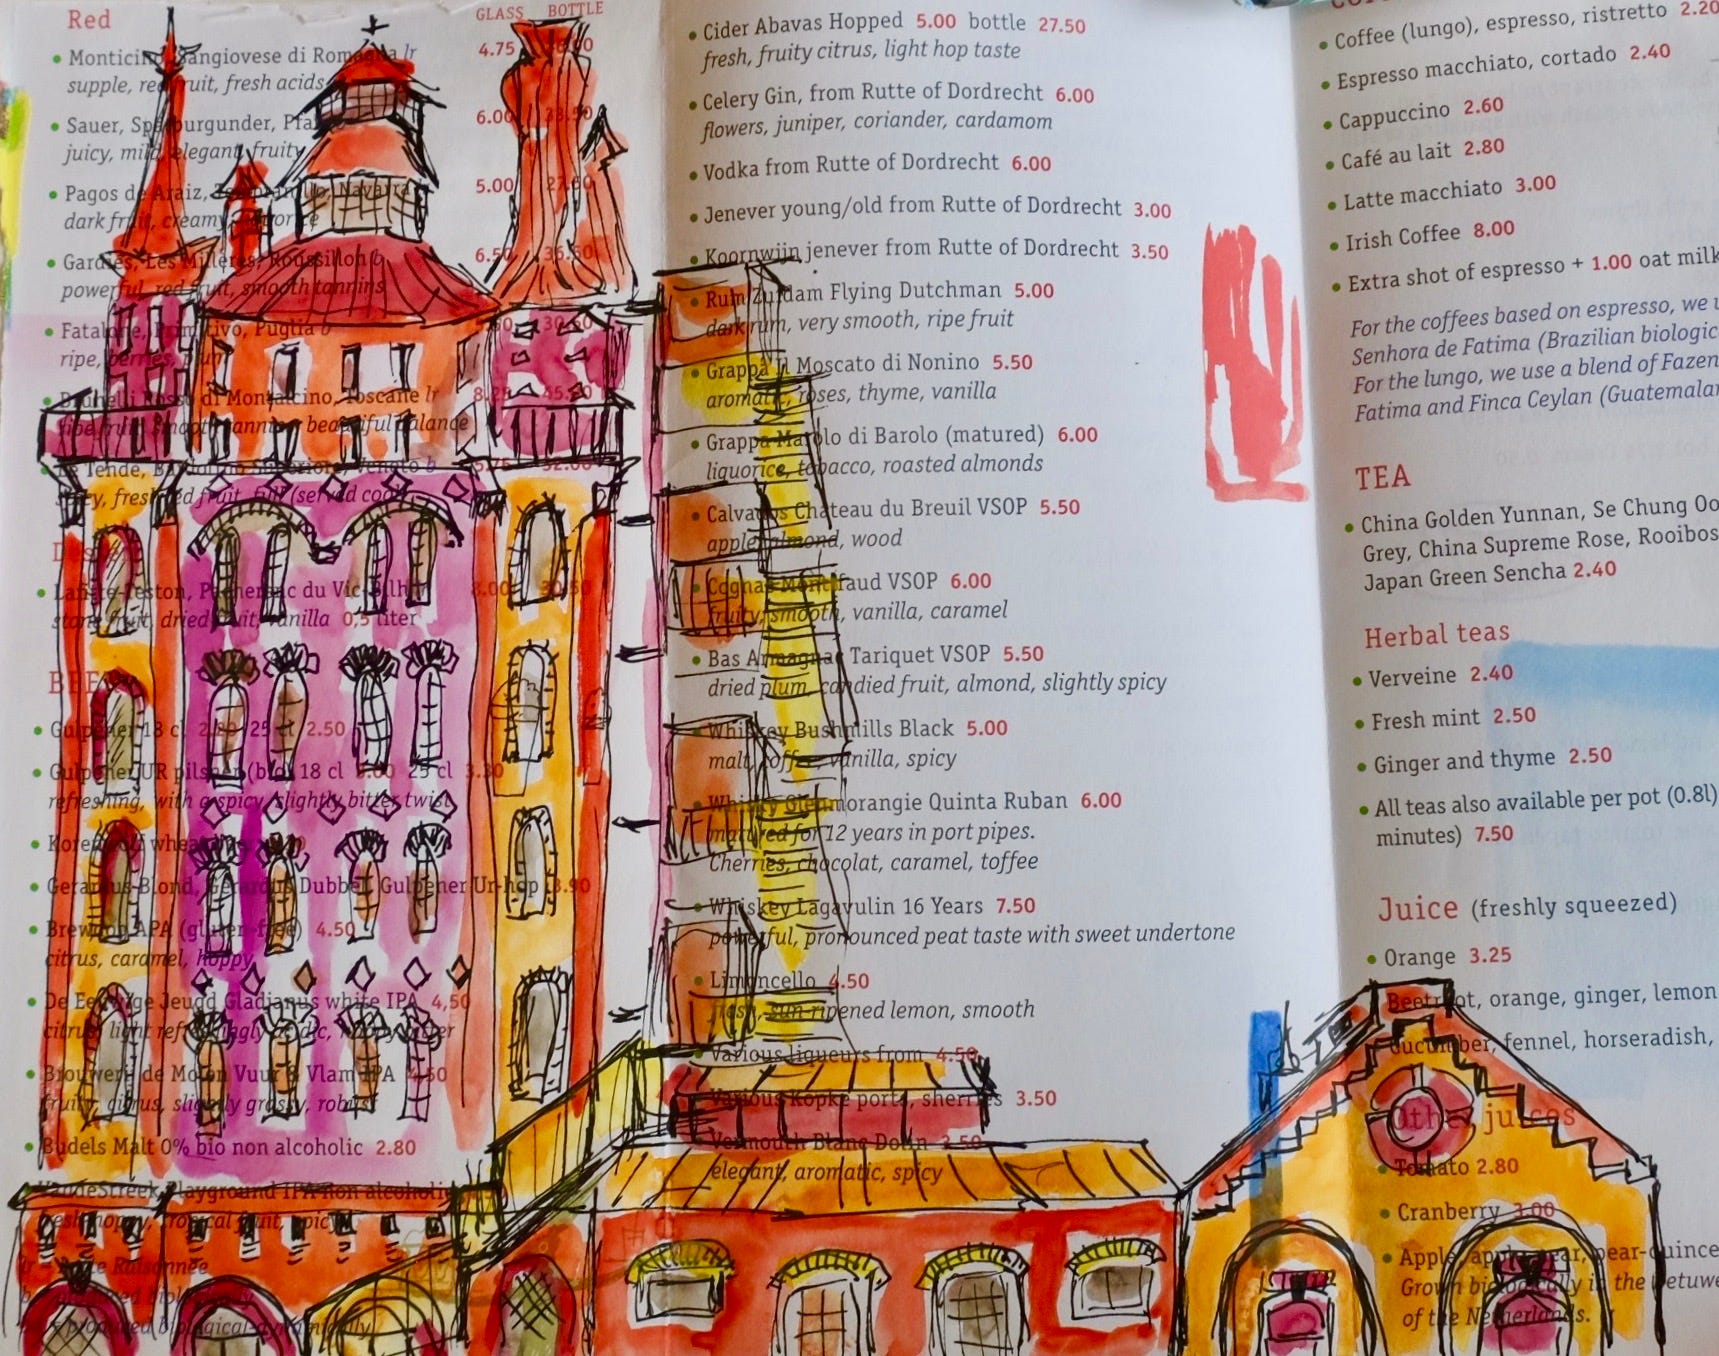 Red
GLASS BOTTLE
Monticino, Sangiovese di Romagna lr 4.75
supple, red fruit, fresh acids
Sauer, Spätburgunder, Pfalz 6.00 33.50
juicy, mild, elegant, fruity
Pagos de Araiz, Tempranillo, Navarra 5.00 27.50
dark fruit, creamy, liquorice
Gardiés, Les Millères, Roussillon b 6.50 36.50
powerful, red fruit, smooth tannins
Fatalone, Primitivo, Puglia b
ripe, berries, plum
Brunelli Rosso di Montalcino, Toscane lr 8.25 45.50
ripe fruit, smooth tannins, beautiful balance
Le Tende, Bardolino Superiore, Veneto b 5.75 32.00
spicy, fresh red fruit, full (served cool)
Lafitte-Teston, Pacherenc du Vic-Bilh 8.00 30.50
stone fruit, dried fruit, vanilla 0,5 liter
BEER
Gulpener 18 cl 2.20 25 cl 2.50
Gulpener UR pilsner (bio) 18 cl 3.00 25 cl 3.30
refreshing, with a spicy, slightly bitter twist
Korenwolf wheat
Gerardus Blond, Gerardus Dubbel, Gulpener Ur-hop 3.90
Brewdog APA (gluten-free) 4.50
citrus, caramel, hoppy
De Eeuwige Jeugd Gladjanus white IPA 4,50
citrus, light refreshingly acidic, hoppy bitter
Brouwerij de Molen Vuur & Vlam IPA 4.50
fruity, citrus, slightly grassy, robust
Budels Malt 0% bio non alcoholic 2.80
VandeStreek Playground IPA non alcoholic
fresh hoppy, tropical fruit, spicy
lr = Lutte Raisonnée
b = produced biologically
bd = produced biological-dynamically
Cider Abavas Hopped 5.00 bottle 27.50
fresh, fruity citrus, light hop taste
Celery Gin, from Rutte of Dordrecht 6.00
flowers, juniper, coriander, cardamom
Vodka from Rutte of Dordrecht 6.00
Jenever young/old from Rutte of Dordrecht 3.00
Koornwijn jenever from Rutte of Dordrecht 3.50
Rum Zuidam Flying Dutchman 5.00
dark rum, very smooth, ripe fruit
Grappa il Moscato di Nonino 5.50
aromatic, roses, thyme, vanilla
Grappa Marolo di Barolo (matured) 6.00
liquorice, tobacco, roasted almonds
Calvados Château du Breuil VSOP 5.50
apple, almond, wood
Cognac Montifaud VSOP 6.00
fruity, smooth, vanilla, caramel
Bas Armagnac Tariquet VSOP 5.50
dried plum, candied fruit, almond, slightly spicy
Whiskey Bushmills Black 5.00
malt, toffee, vanilla, spicy
Whisky Glenmorangie Quinta Ruban 6.00
matured for 12 years in port pipes.
Cherries, chocolat, caramel, toffee
Whiskey Lagavulin 16 Years 7.50
powerful, pronounced peat taste with sweet undertone
Limoncello 4.50
fresh, sun-ripened lemon, smooth
Various liqueurs from 4.50
Various Kopke ports, sherries 3.50
Vermouth Blanc Dolin 3.50
elegant, aromatic, spicy
Coffee (lungo), espresso, ristretto 2.20
Espresso macchiato, cortado 2.40
Cappuccino 2.60
Café au lait 2.80
Latte macchiato 3.00
Irish Coffee 8.00
Extra shot of espresso + 1.00 oat milk
For the coffees based on espresso, we u
Senhora de Fatima (Brazilian biologic
For the lungo, we use a blend of Fazen
Fatima and Finca Ceylan (Guatemalan
TEA
China Golden Yunnan, Se Chung Oo
Grey, China Supreme Rose, Rooibos
Japan Green Sencha 2.40
Herbal teas
Verveine 2.40
Fresh mint 2.50
Ginger and thyme 2.50
All teas also available per pot (0.8l)
minutes) 7.50
Juice (freshly squeezed)
Orange 3.25
Beetroot, orange, ginger, lemon
Cucumber, fennel, horseradish,
Other juices
Tomato 2.80
Cranberry 3.00
Apple, apple-pear, pear-quince
Grown biologically in the Betuwe
of the Netherlands.